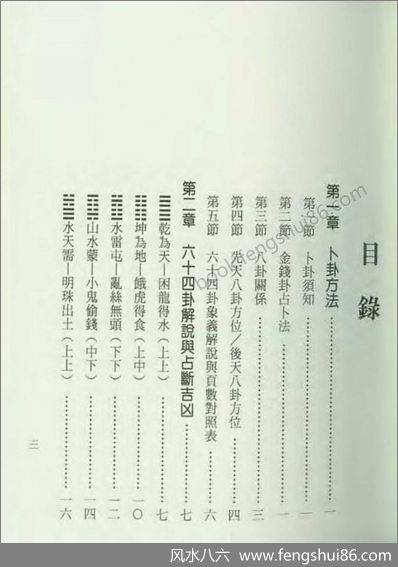 目錄
第一章 卜卦方法………一
第一節 卜卦須知………一
第二節 金錢卦占卜法………一
第三節 八卦關係………三
第四節 先天八卦方位/後天八卦方位………四
第五節 六十四卦象義解說與頁數對照表………六
第二章 六十四卦解說與占斷吉凶………七
乾為天—困龍得水(上上)………七
坤為地—餓虎得食(上中)………一〇
水雷屯—亂絲無頭(下下)………一二
山水蒙—小鬼偷錢(中下)………一四
水天需—明珠出土(上上)………一六
三
风水八六 www.fengshui86.com